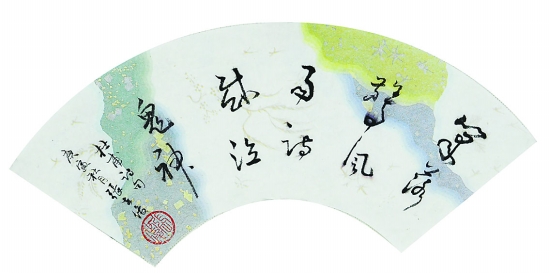 筆落
驚風
雨詩
成泣
鬼神
杜甫詩句
庚寅秋月張